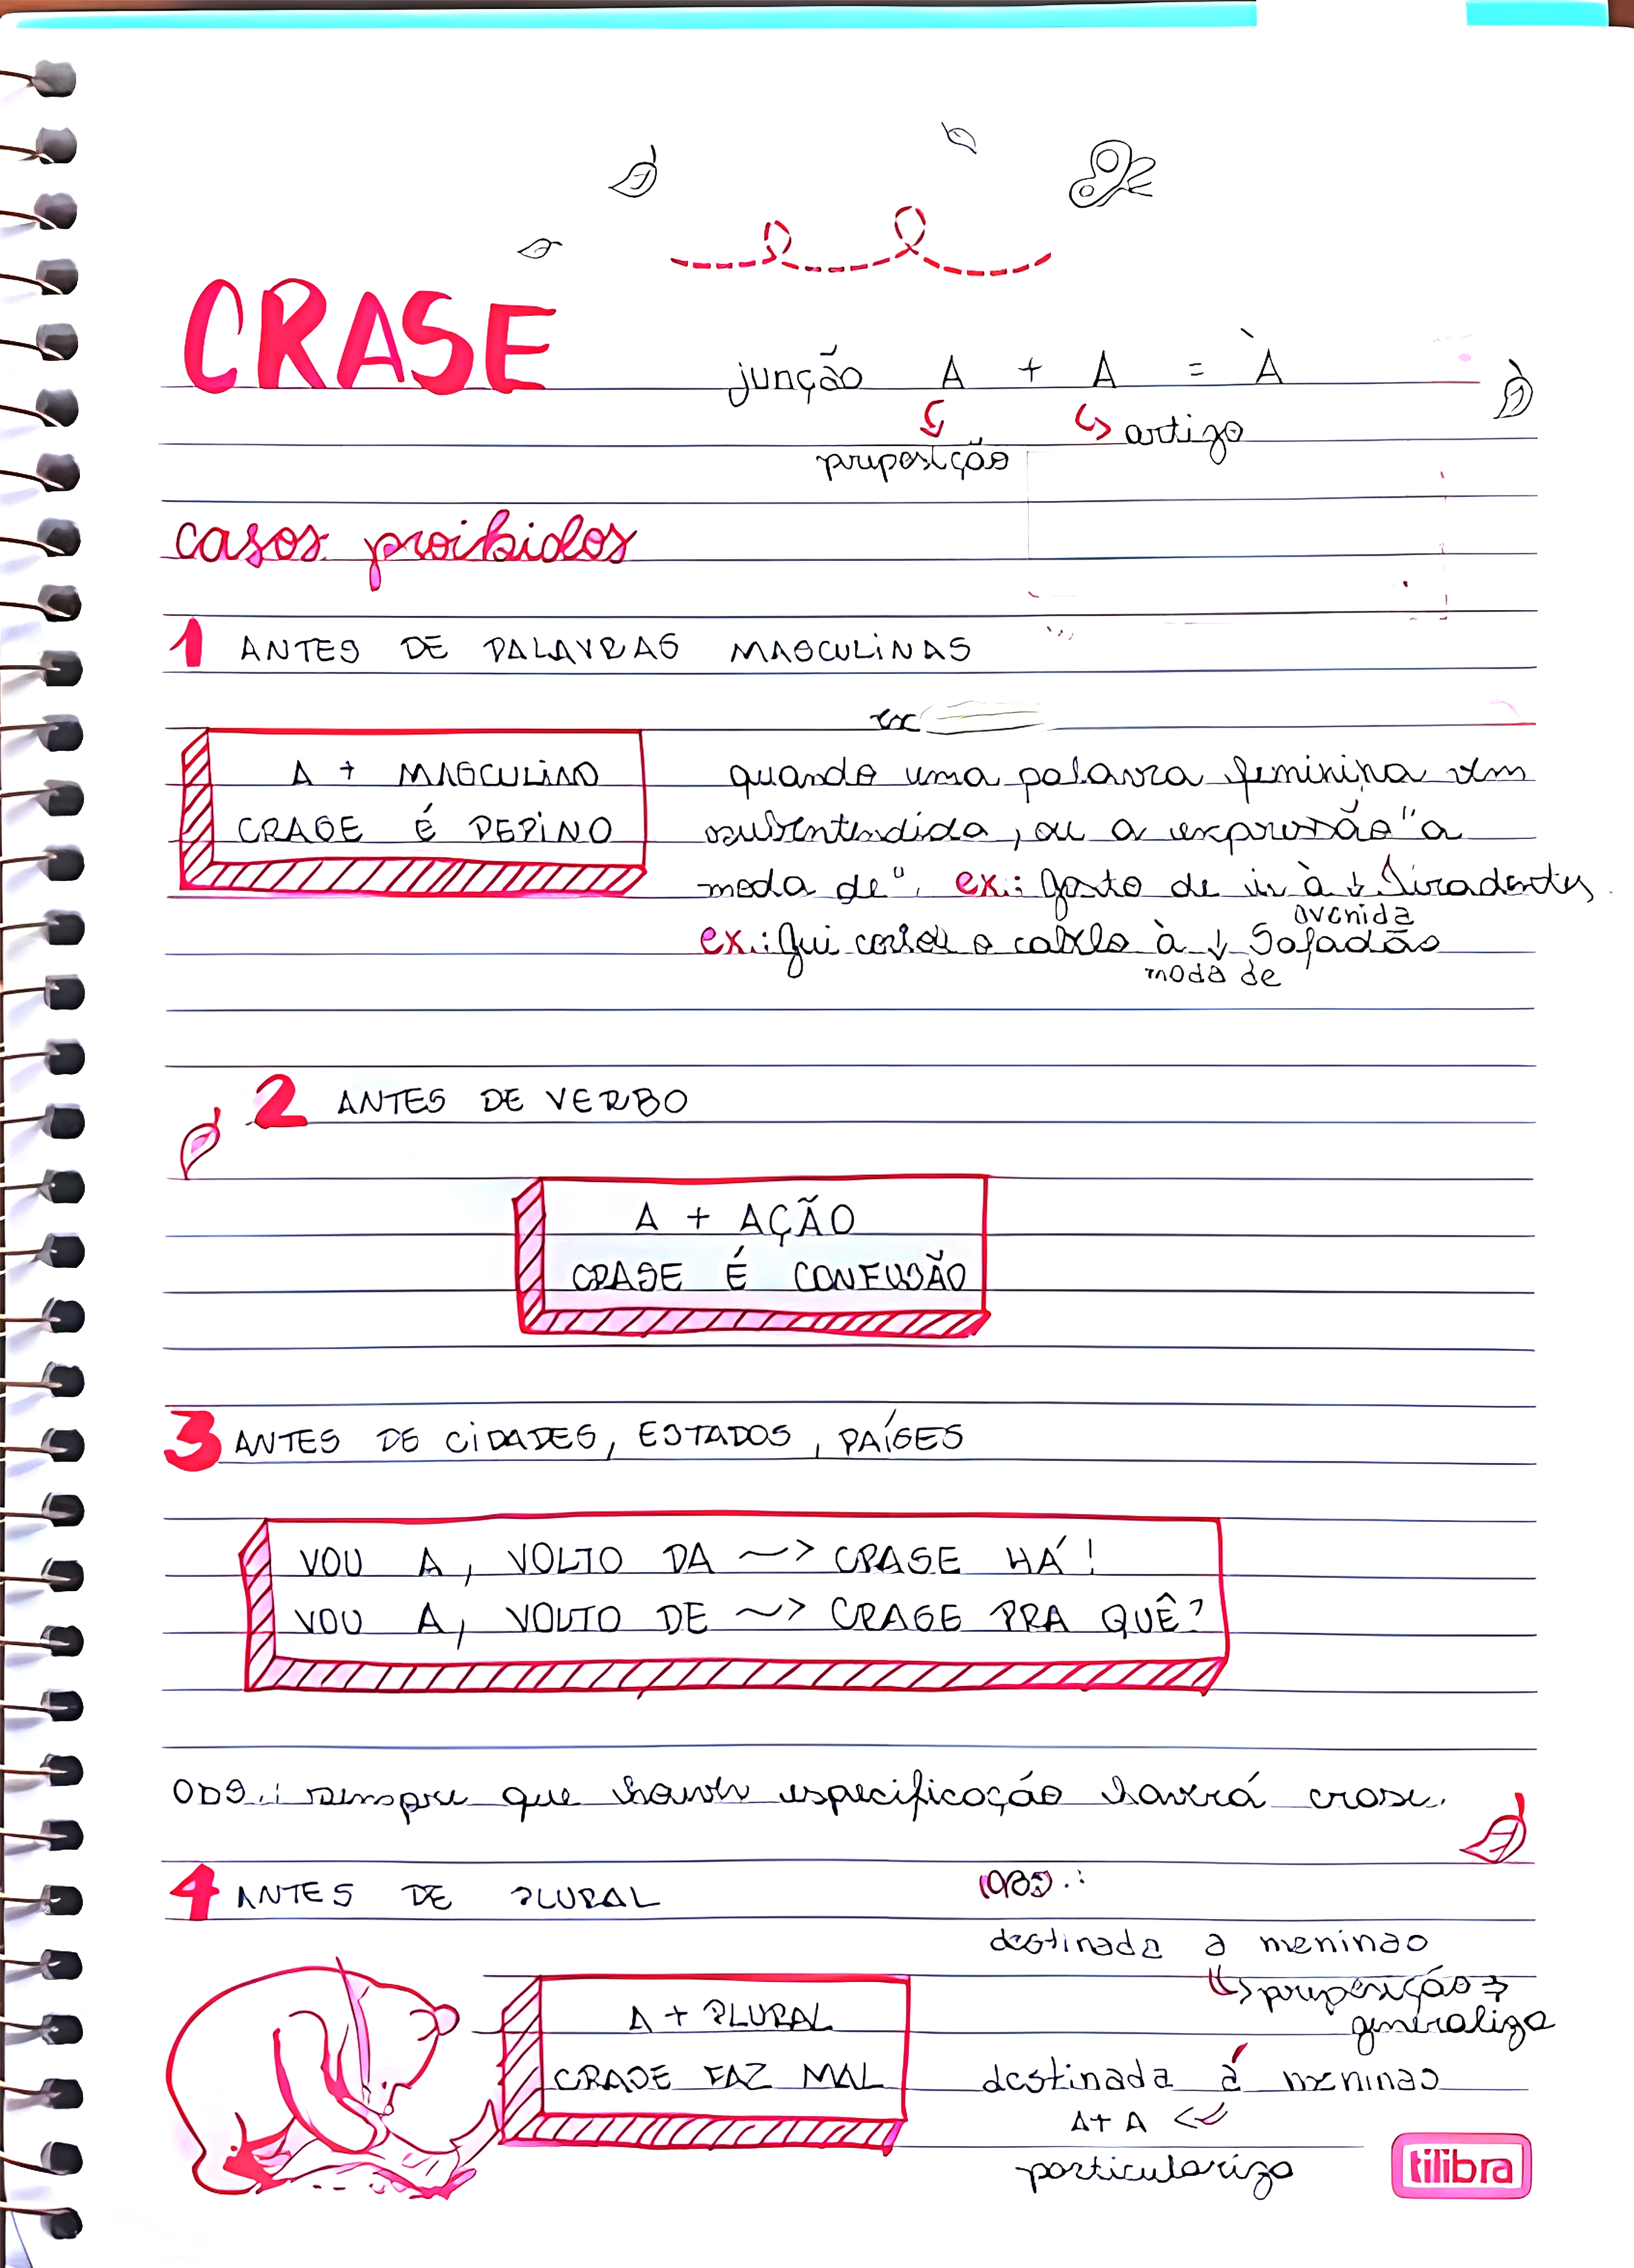 CRASE
junção A + A = À
preposição artigo
casos proibidos
1 ANTES DE PALAVRAS MASCULINAS
ex
A + MASCULINO
CRASE É PEPINO
quando uma palavra feminina vem
subentendida, ou a expressão "a
moda de". ex.: Gosto de ir à ↓ Tiradentes
avenida
ex.: Fui cortar o cabelo à ↓ Safadão
moda de
2 ANTES DE VERBO
A + AÇÃO
CRASE É CONFUSÃO
3 ANTES DE CIDADES, ESTADOS, PAÍSES
VOU A, VOLTO DA ~> CRASE HÁ!
VOU A, VOLTO DE ~> CRASE PRA QUÊ?
OBS.: sempre que houver especificação haverá crase.
4 ANTES DE PLURAL
A + PLURAL
CRASE FAZ MAL
OBS.:
destinada a meninas
preposição →
generaliza
destinada á meninas
A + A
particulariza
tilibra